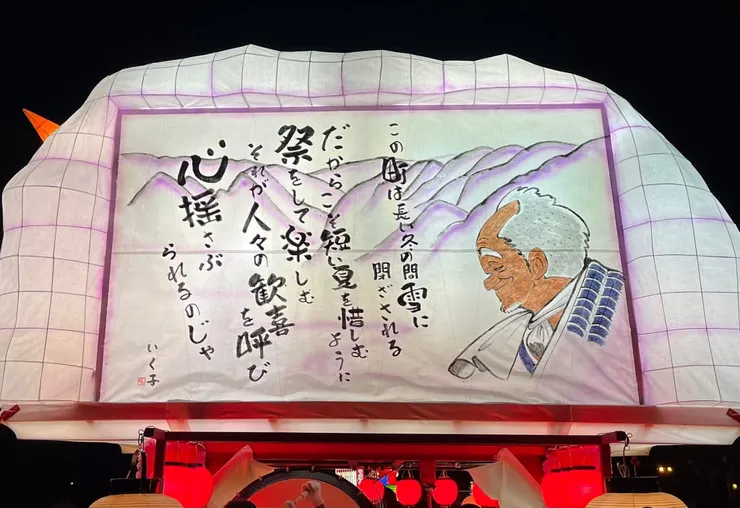 この町は長い冬の間雪に
閉ざされる
だからこそ短い夏を惜しむ
ように
祭をして楽しむ
それが人々の歓喜を呼び
心揺さぶ
られるのじゃ
いく子